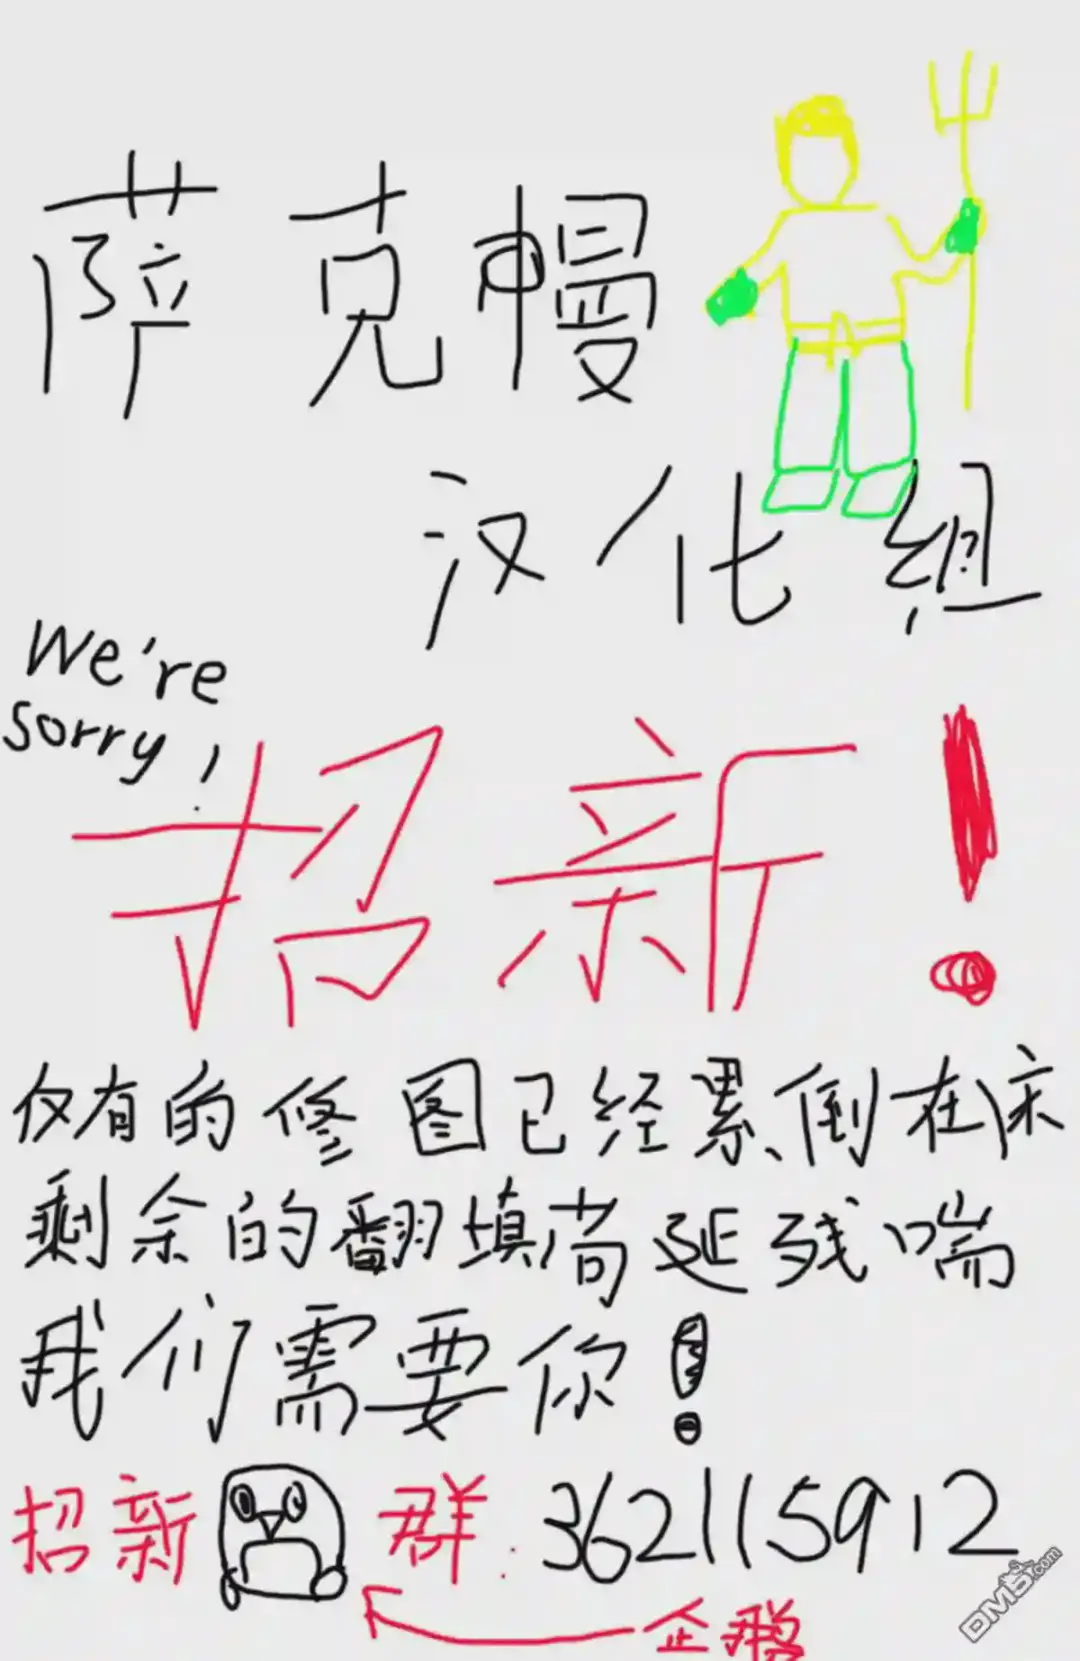 萨克幔
汉化组
We're
sorry!
招新!
仅有的修图已经累倒在床
剩余的翻填尚延残喘
我们需要你!
招新 群:362115912
企鹅
DM5.com